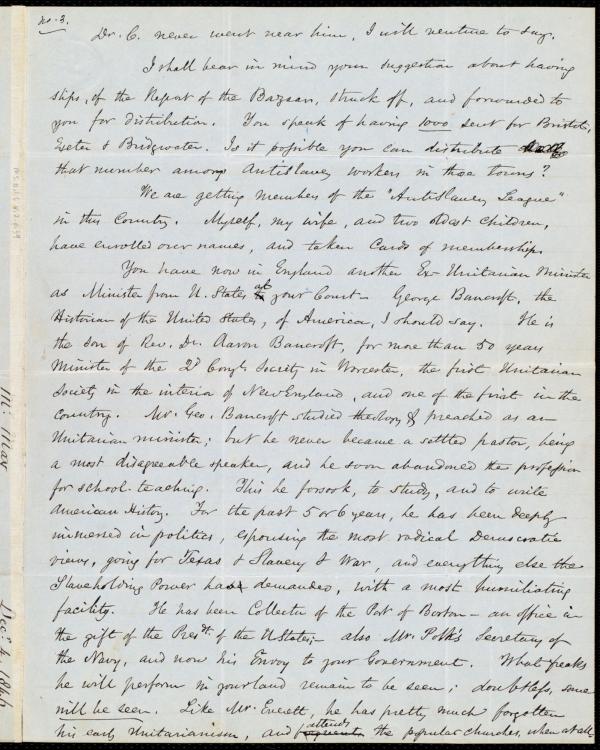 no. 3.
Dr. C. never went near him, I will venture to say.
I shall bear in mind your suggestion about having
slips, of the Report of the Bazaar, struck off, and forwarded to
you for distribution. You speak of having 1000 sent for Bristol,
Exeter & Bridgwater. Is it possible you can distribute
that number among Antislavery workers in those towns?
We are getting members of the "Antislavery League"
in this Country. Myself, my wife, and two oldest children,
have enrolled our names, and taken Cards of membership.
You have now in England another Ex-Unitarian Minister
as Minister from U. States at your Court - George Bancroft, the
Historian of the United States, of America, I should say. He is
the son of Rev. Dr. Aaron Bancroft, for more than 50 years
Minister of the 2d Congl. Society in Worcester, the first Unitarian
Society in the interior of New England, and one of the first in the
Country. Mr. Geo. Bancroft studied theology & preached as an
Unitarian minister; but he never became a settled pastor, being
a most disagreeable speaker, and he soon abandoned the profession
for school-teaching. This he forsook, to study, and to write
American History. For the past 5 or 6 years, he has been deeply
immersed in politics, espousing the most radical Democratic
views, going for Texas & Slavery & War, and everything else the
Slaveholding Power has demanded, with a most humiliating
facility. He has been Collector of the Port of Boston - an office in
the gift of the Presdt. of the U States; - also Mr. Polk's Secretary of
the Navy, and now his Envoy to your Government. What freaks
he will perform in your land remain to be seen; doubtless, some
will be seen. Like Mr. Everett, he has pretty much forgotten
his early Unitarianism, and frequents attends the popular churches, when at all -
M: May
Dec. 4. 1846